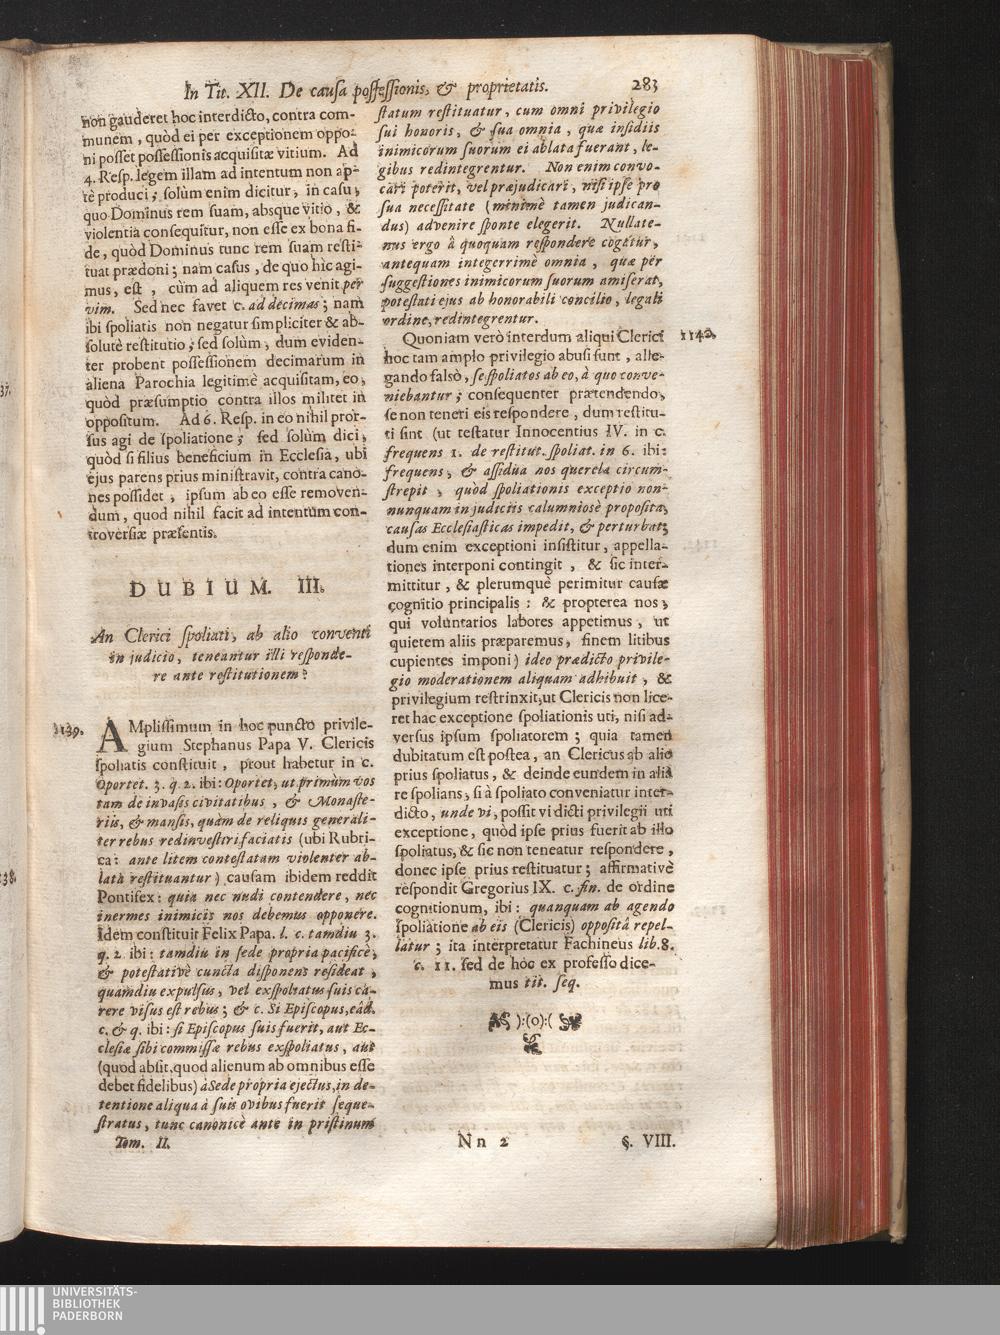 In Tit. XII. De causa possessionis, & proprietatis. 283
non gauderet hoc interdicto, contra com-
munem, quòd ei per exceptionem oppo-
ni posset possessionis acquisitæ vitium. Ad
4. Resp. legem illam ad intentum non ap-
tè produci; solùm enim dicitur, in casu,
quo Dominus rem suam, absque vitio, &
violentia consequitur, non esse ex bona fi-
de, quòd Dominus tunc rem suam resti-
tuat prædoni; nam casus, de quo hìc agi-
mus, est, cùm ad aliquem res venit per
vim. Sed nec favet c. ad decimas; nam
ibi spoliatis non negatur simpliciter & ab-
solutè restitutio; sed solùm, dum eviden-
ter probent possessionem decimarum in
aliena Parochia legitimè acquisitam, eo,
quòd præsumptio contra illos militet in
oppositum. Ad 6. Resp. in eo nihil pror-
sus agi de spoliatione; sed solùm dici,
quòd si filius beneficium in Ecclesia, ubi
ejus parens prius ministravit, contra cano-
nes possidet, ipsum ab eo esse removen-
dum, quod nihil facit ad intentum con-
troversiæ præsentis.
DUBIUM. III.
An Clerici spoliati, ab alio conventi
in judicio, teneantur illi responde-
re ante restitutionem?
1139.
AMplissimum in hoc puncto privile-
gium Stephanus Papa V. Clericis
spoliatis constituit, prout habetur in c.
Oportet. 3. q. 2. ibi: Oportet, ut primùm vos
tam de invasis civitatibus, & Monaste-
riis, & mansis, quàm de reliquis generali-
ter rebus redinvestiri faciatis (ubi Rubri-
ca: ante litem contestatam violenter ab-
lata restituantur) causam ibidem reddit
Pontifex: quia nec nudi contendere, nec
inermes inimicis nos debemus opponere.
Idem constituit Felix Papa. l. c. tamdiu 3.
q. 2. ibi: tamdiu in sede propria pacificè,
& potestativè cuncta disponens resideat,
quamdiu expulsus, vel exspoliatus suis ca-
rere visus est rebus; & c. Si Episcopus, eâd.
c. & q. ibi: si Episcopus suis fuerit, aut Ec-
clesiæ sibi commissæ rebus exspoliatus, aut
(quod absit, quod alienum ab omnibus esse
debet fidelibus) à Sede propria ejectus, in de-
tentione aliqua à suis ovibus fuerit seque-
stratus, tunc canonicè ante in pristinum
statum restituatur, cum omni privilegio
sui honoris, & sua omnia, quæ insidiis
inimicorum suorum ei ablata fuerant, le-
gibus redintegrentur. Non enim convo-
cari poterit, vel præjudicari, nisi ipse pro
sua necessitate (minimè tamen judican-
dus) advenire sponte elegerit. Nullate-
nus ergo à quoquam respondere cogatur,
antequam integerrimè omnia, quæ per
suggestiones inimicorum suorum amiserat,
potestati ejus ab honorabili concilio, legali
ordine, redintegrentur.
Quoniam verò interdum aliqui Clerici
1140.
hoc tam amplo privilegio abusi sunt, alle-
gando falsò, se spoliatos ab eo, à quo conve-
niebantur; consequenter prætendendo,
se non teneri eis respondere, dum restitu-
ti sint (ut testatur Innocentius IV. in c.
frequens 1. de restitut. spoliat. in 6. ibi:
frequens, & assidua nos querela circum-
strepit, quòd spoliationis exceptio non-
nunquam in judiciis calumniosè proposita,
causas Ecclesiasticas impedit, & perturbat;
dum enim exceptioni insistitur, appella-
tiones interponi contingit, & sic inter-
mittitur, & plerumquè perimitur causæ
cognitio principalis: & propterea nos,
qui voluntarios labores appetimus, ut
quietem aliis præparemus, finem litibus
cupientes imponi) ideo prædicto privile-
gio moderationem aliquam adhibuit, &
privilegium restrinxit, ut Clericis non lice-
ret hac exceptione spoliationis uti, nisi ad-
versus ipsum spoliatorem; quia tamen
dubitatum est postea, an Clericus ab alio
prius spoliatus, & deinde eundem in aliâ
re spolians, si à spoliato conveniatur inter-
dicto, unde vi, possit vi dicti privilegii uti
exceptione, quòd ipse prius fuerit ab illo
spoliatus, & sic non teneatur respondere,
donec ipse prius restituatur; affirmativè
respondit Gregorius IX. c. fin. de ordine
cognitionum, ibi: quanquam ab agendo
spoliatione ab eis (Clericis) opposita repel-
latur; ita interpretatur Fachineus lib. 8.
c. 11. sed de hoc ex professo dice-
mus tit. seq.
):(o):(
Tom. II. Nn 2 §. VIII.
37.
38.
UNIVERSITÄTS-
BIBLIOTHEK
PADERBORN